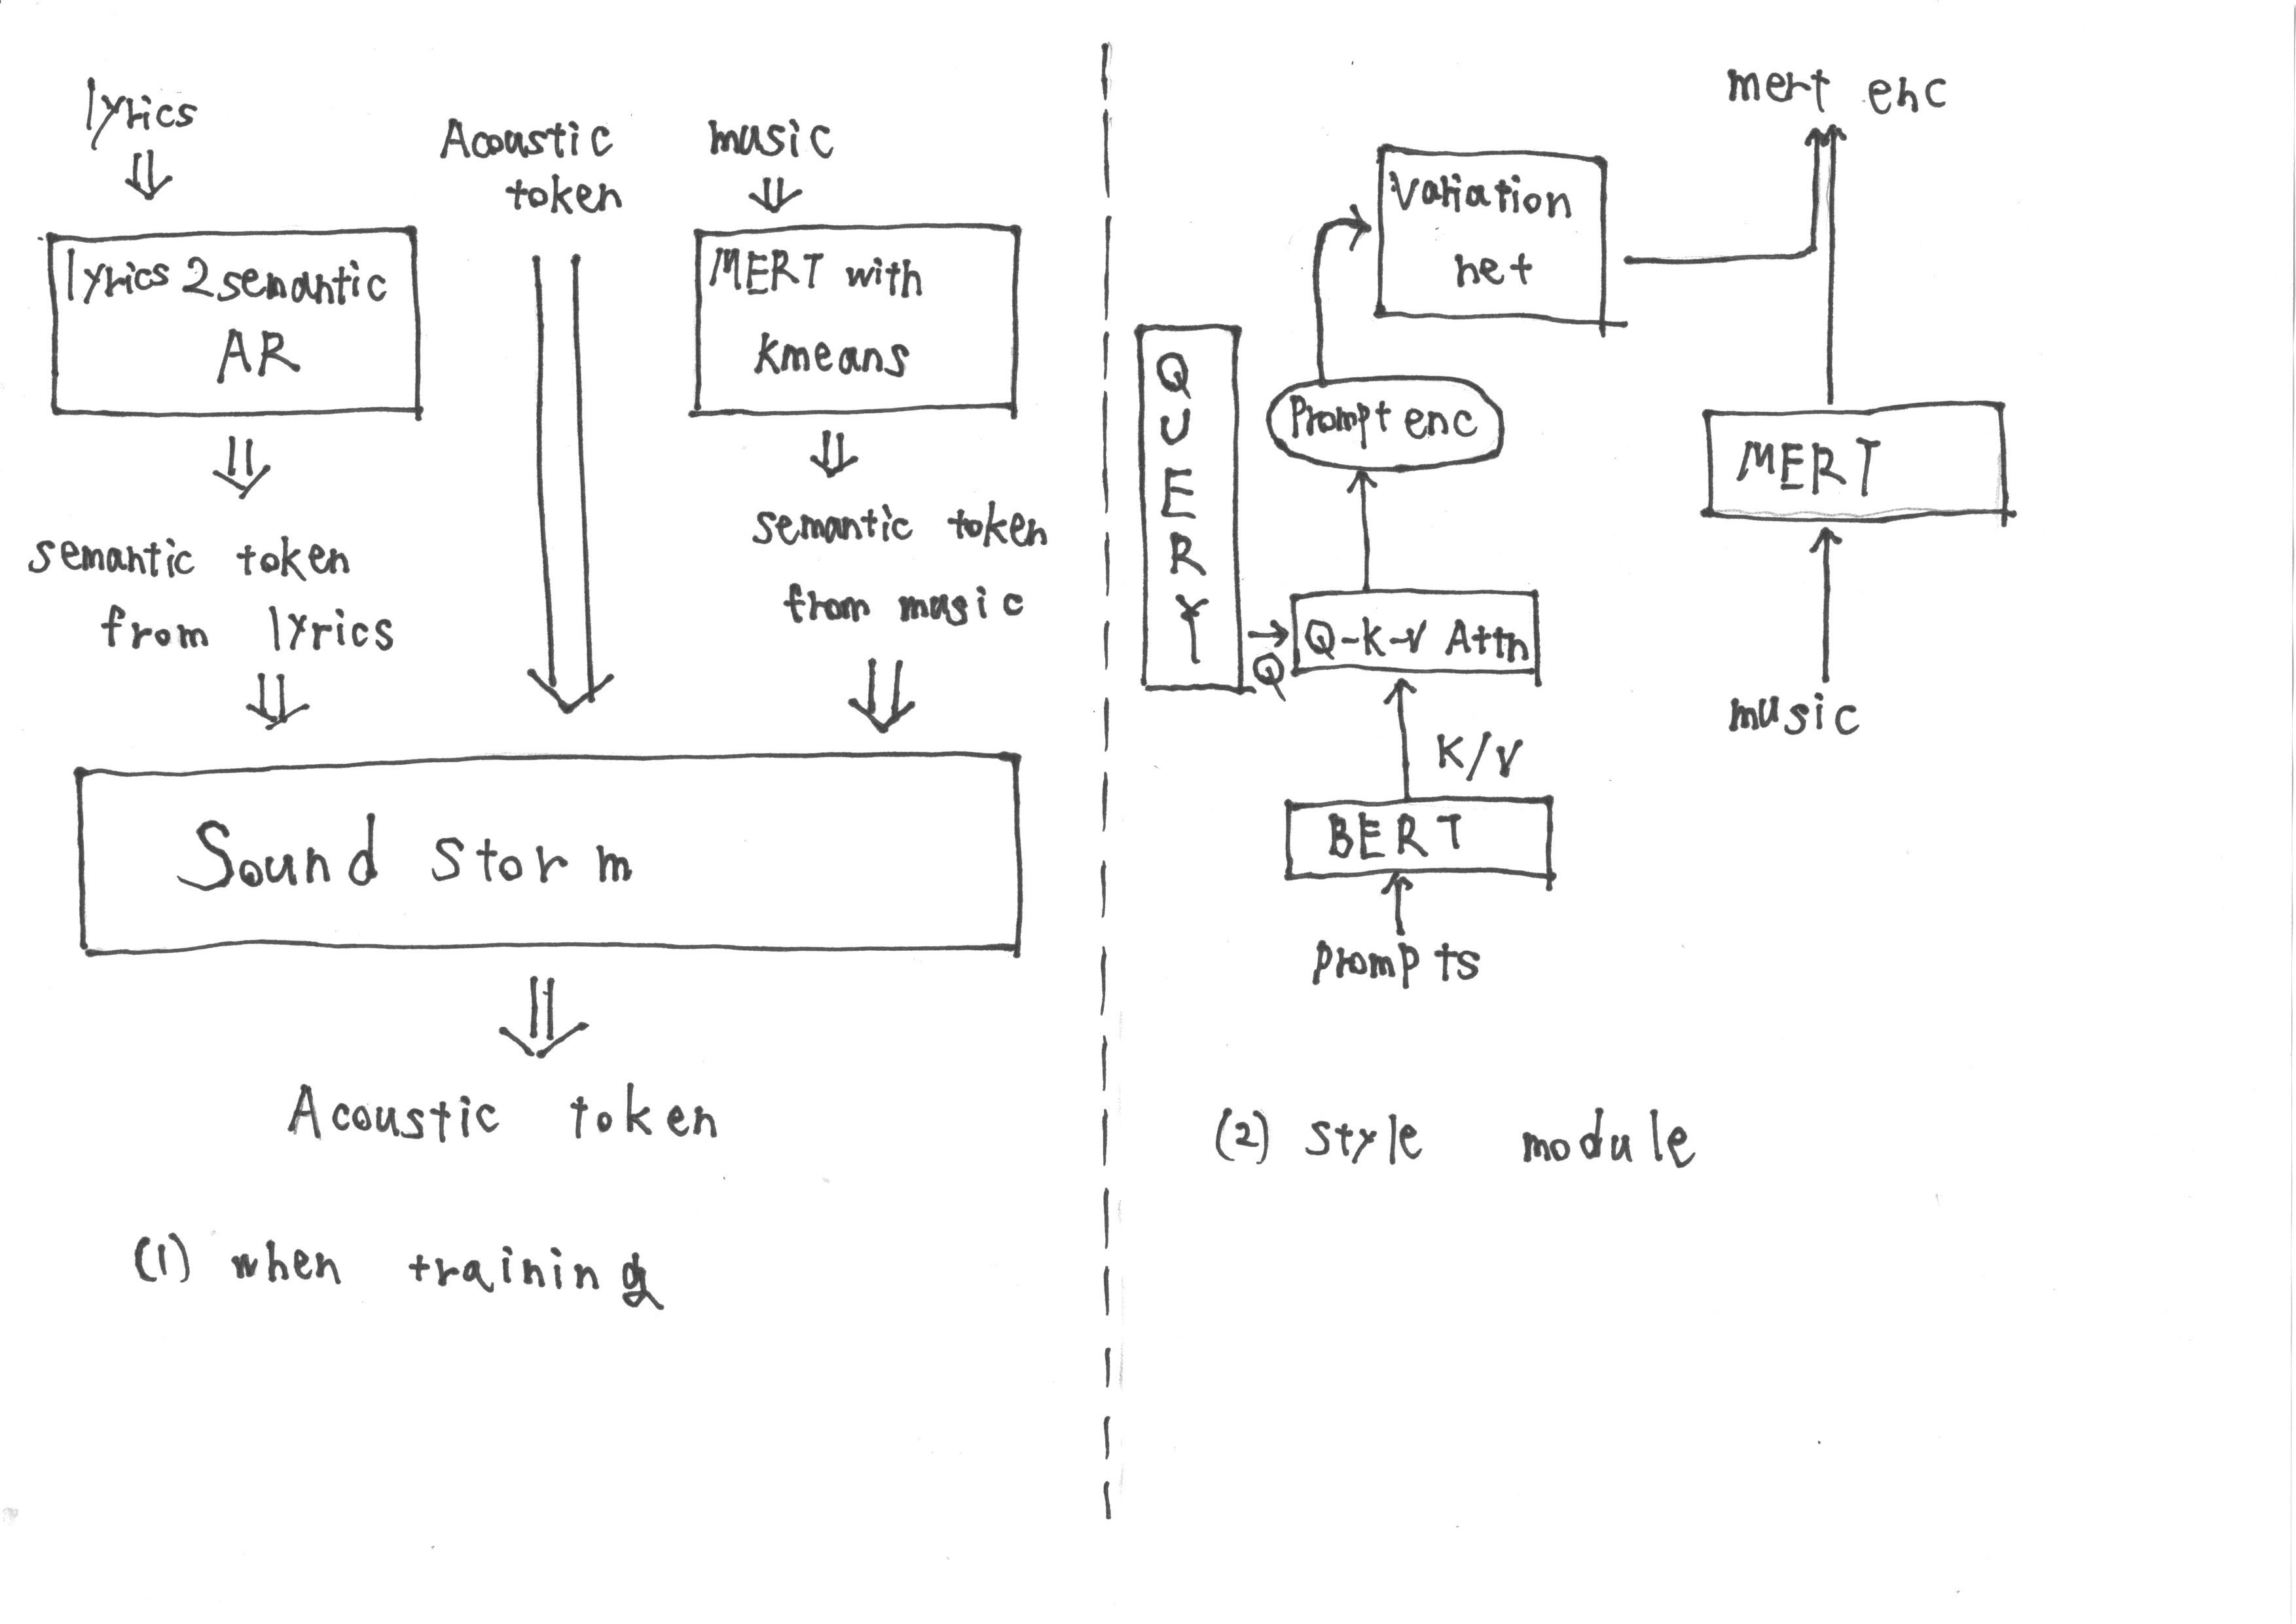 lyrics
Acoustic
token
music
lyrics2semantic
AR
MERT with
kmeans
semantic token
from lyrics
semantic token
from music
Sound Storm
Acoustic token
(1) when training
mert enc
Variation
net
QUERY
Prompt enc
MERT
Q-K-V Attn
Q
music
K/V
BERT
prompts
(2) style module